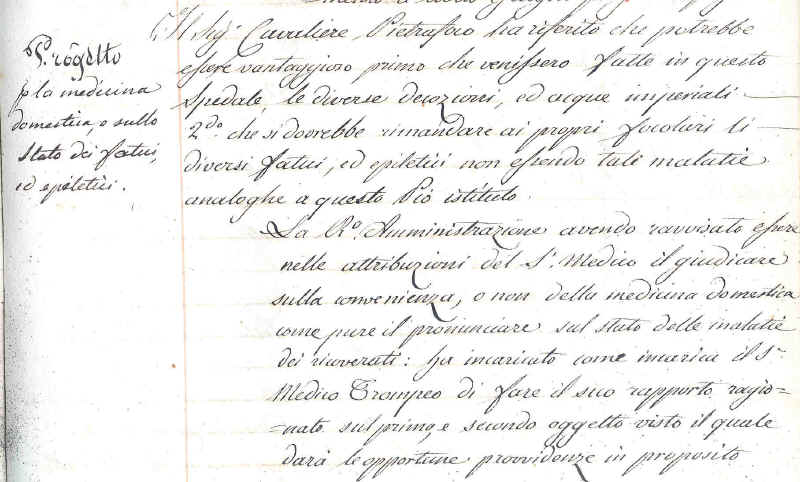 Progetto
p la medicina
domestica, e sullo
Stato dei fatui,
ed epiletici.
Il Sig.r Cavaliere Pietrafoco ha riferito che potrebbe
essere vantaggioso primo che venissero fatte in questo
Spedale, le diverse decozioni, ed acque imperiali
2.do che si dovrebbe rimandare ai proprj focolari li
diversi fatui, ed epiletici non essendo tali malatie
analoghe a questo Pio istituto.
La R.a Amministrazione avendo ravvisato essere
nelle attribuzioni del S.r Medico il giudicare
sulla convenienza, o non della medicina domestica
come pure il pronunciare sul stato delle malatie
dei ricoverati: ha incaricato come incarica il S.r
Medico Trompeo di fare il suo rapporto ragio=
=nato sul primo, e secondo oggetto visto il quale
darà le opportune provvidenze in proposito